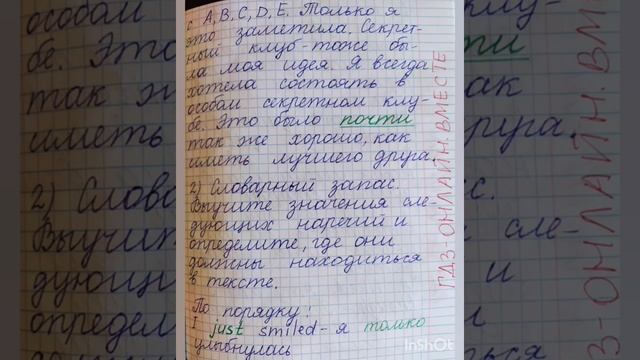 с A, B, C, D, E. Только я
это заметила. Секрет-
ный клуб-тоже бы-
ла моя идея. Я всегда
хотела состоять в
особом секретном клу-
бе. Это было почти
так же хорошо, как
иметь лучшего друга.
2) Словарный запас.
Выучите значения сле-
дующих наречий и
определите, где они
должны находиться
в тексте.
По порядку!
I just smiled-я только
улыбнулась
ГДЗ-ОНЛАЙН. ВМЕСТЕ
InShot